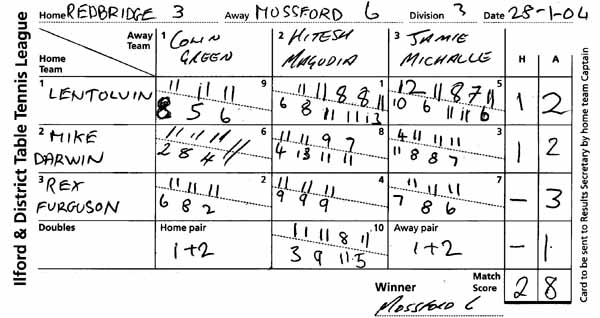 Ilford & District Table Tennis League
Home REDBRIDGE 3 Away MOSSFORD 6 Division 3 Date 28-1-04
Away Team 1 COLIN GREEN 2 HITESH MAGUDIA 3 JAMIE MICHALLE H A
Home Team
1 LEN TOLVIN 9 1 5 1 2
11 11 11 11 11 8 8 11 12 11 8 7 11
8 5 6 6 8 11 11 13 10 6 11 11 6
2 MIKE DARWIN 6 8 3 1 2
11 11 11 11 11 9 7 4 11 11 11
2 8 4 4 13 11 11 11 8 8 7
3 REX FURGUSON 2 4 7 - 3
11 11 11 11 11 11 11 11 11
6 8 2 9 9 9 7 8 6
Doubles Home pair 10 Away pair - 1
1+2 11 11 11 8 11 1+2
3 9 11 5
Winner Match Score 2 8
MOSSFORD 6
Card to be sent to Results Secretary by home team Captain